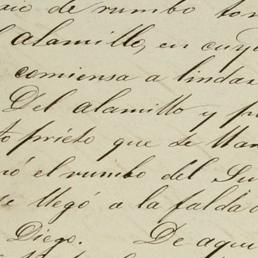 de rumbo
alamillo, en cuyo
comiensa a lindar
Del alamillo y
prieto que se llam
el rumbo del Su
se llegó a la falda
Diego. De aqui